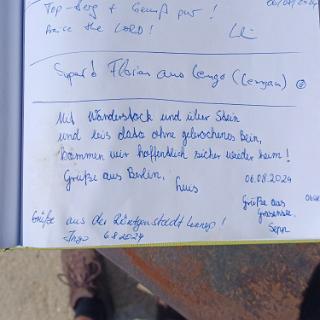 Top-Berg + Genuß pur!
Praise the LORD!
Superb Florian aus Lengo (Lengau)
Mit Wanderstock und über Stein
und teis dato ohne gebrochenes Bein,
kommen wir hoffentlich sicher wieder heim!
Grüße aus Berlin,
06.08.2024
Grüße aus
Sepp
Grüße aus der Röntgenstadt Lennep!
Ingo 6.8.2024